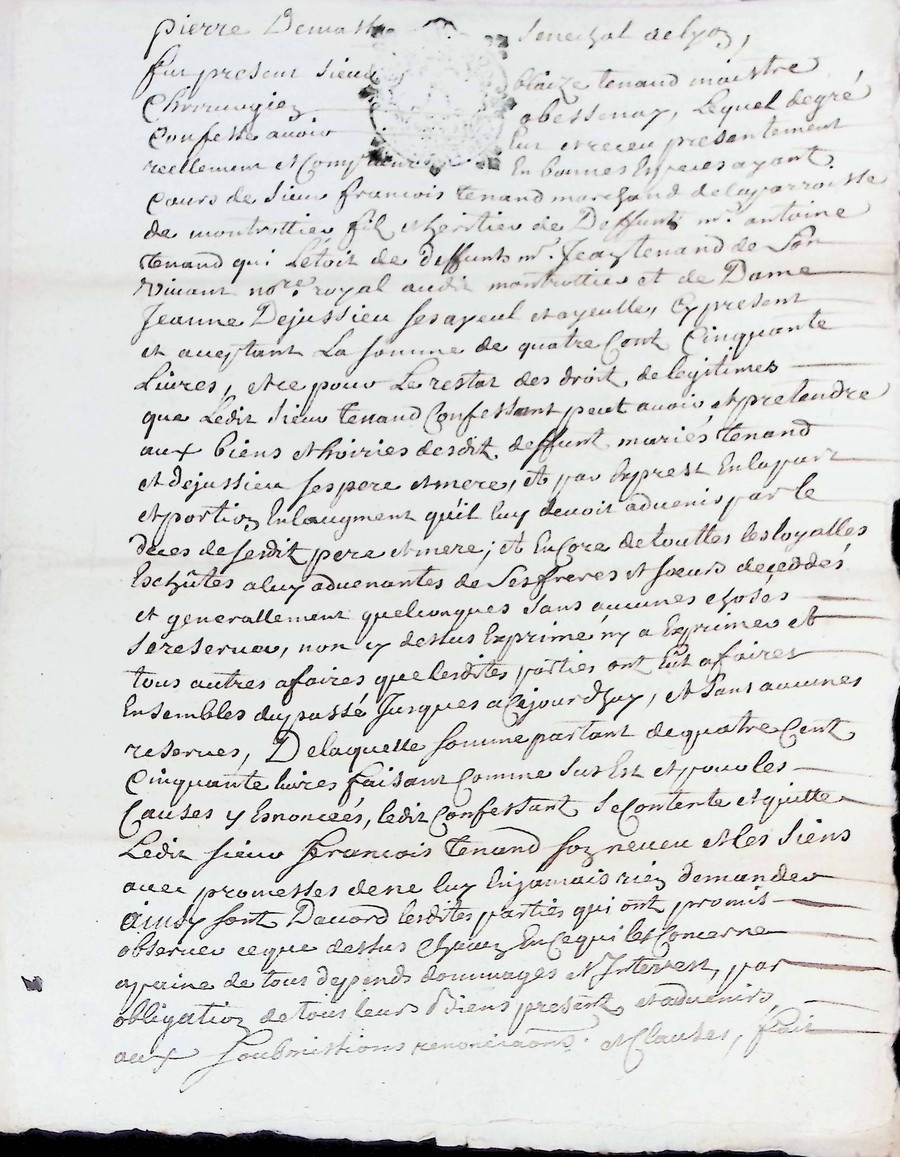 pierre Demas Senechal de lyon,
fut present sieur blaize tenand maistre
Chirurgien a bessenay, Lequel de gré
Confesse avoir Eut et receu presentement
reellement et En bonnes Especes ayant
cours de sieur francois tenand marchand de la parroisse
de montrottier fils et heritier de Deffunt mr. antoine
tenand qui L'etoit de deffunts mr. Jean tenand de Son
Vivant nore. royal audit montrottier et de Dame
Jeanne Dejussieu ses ayeul et ayeulle, Cy present
et acceptant La somme de quatre Cent Cinquante
Livres, et ce pour Le restat des droits de legitimes
que Ledit sieur tenand Confessant peut avoir et pretendre
aux biens et hoiries desdits deffunts mariés tenand
et dejussieu ses pere et mere, et par Exprest En la part
et portion En laugment qu'il luy devoit advenir par le
deces de sesdit pere et mere; et Encore de touttes les loyalles
Eschûtes a luy advenantes de Ses freres et sœurs décéddés
et generallement quelconques sans aucunes choses
se reserver, non cy dessus Exprimé ny a Exprimer et
tous autres afaires que lesdites parties ont Eut afaires
Ensembles du passé Jusques a Cejourdhuy, et Sans aucunes
reserves, De laquelle somme partant de quatre Cent
Cinquante livres faisant Comme Sus Est et pour les
Causes y Esnoncées, ledit Confessant Se Contente et quitte
Ledit sieur francois tenand son neveu et les Siens
avec promesses de ne luy En jamais rien demander
ainsy sont Dacord lesdites parties qui ont promis
observer ce que dessus chacun En Ce qui les Concerne
a peine de tous depends dommages et Interest, par
obligation de tous leurs biens present et advenirs
aux soubmissions renonciaons. et Clauses, fait